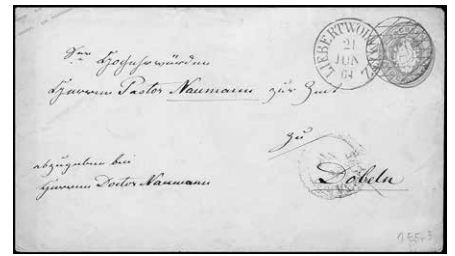 LIEBERTWOLKWITZ
21
JUN
64
Sr. Hochehrwürden
Herrn Pastor Naumann zur Zeit
zu
abzugeben bei
Herrn Doctor Naumann
Döbeln